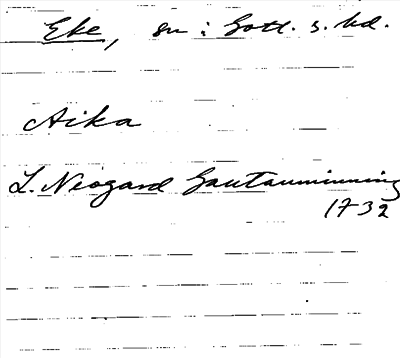 Eke, sn: Gotl. s. hd.
Aika
L. Neogard Gautauminning
1732